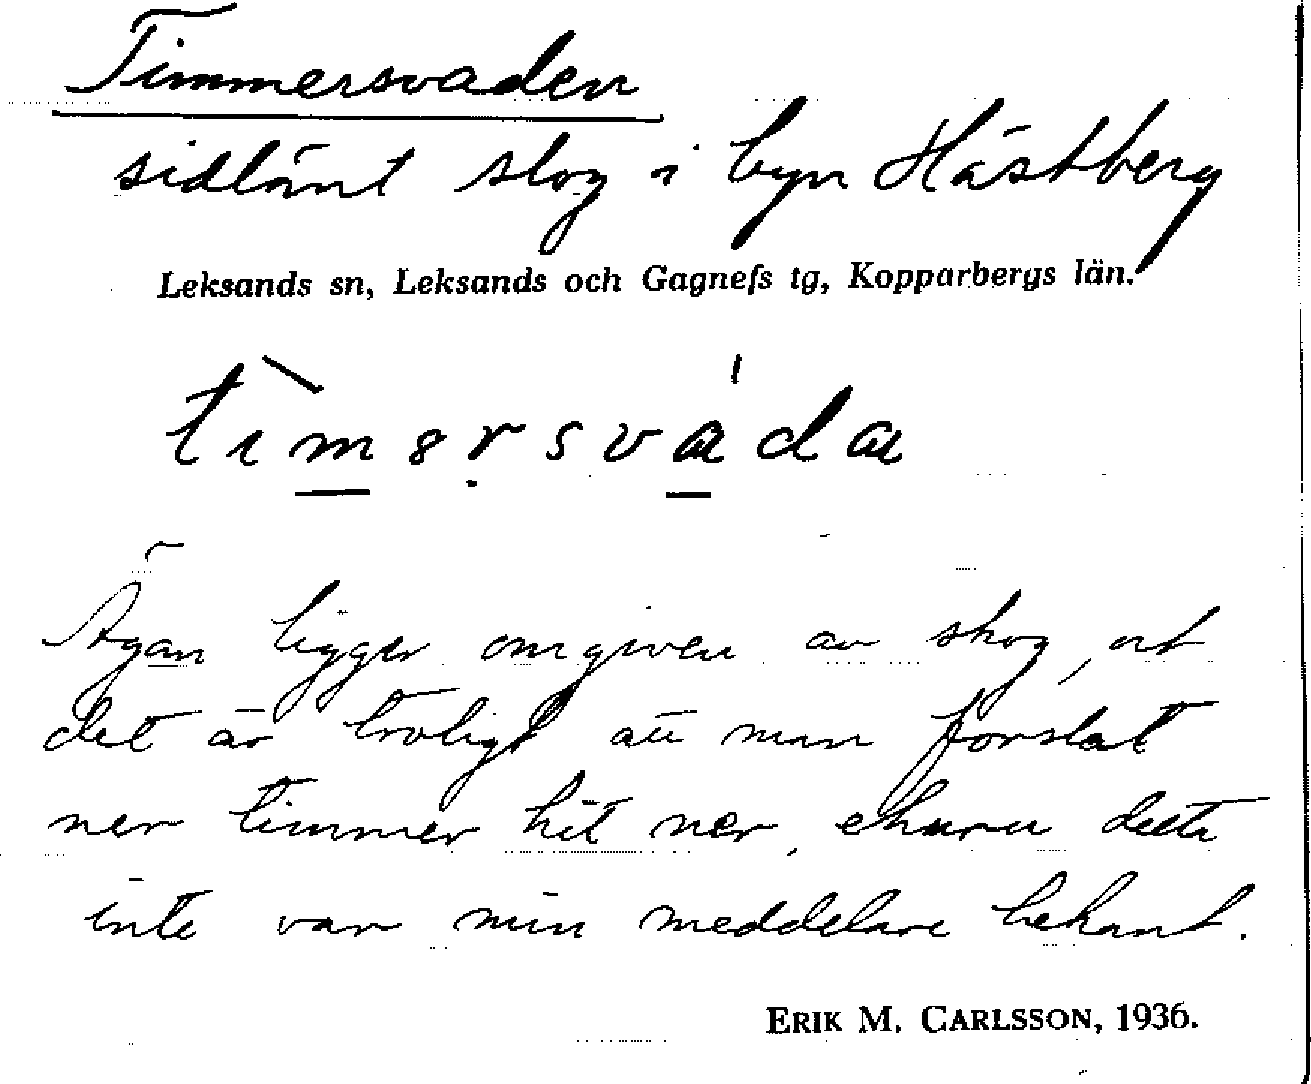 Timmersvaden
sidlänt slog i byn Hästberg
Leksands sn, Leksands och Gagnefs tg, Kopparbergs län.
tìmərsváda
Ägan ligger omgiven av skog, och
det är troligt att man forslat
ner timmer hit ner, ehuru detta
inte var min meddelare bekant.
ERIK M. CARLSSON, 1936.